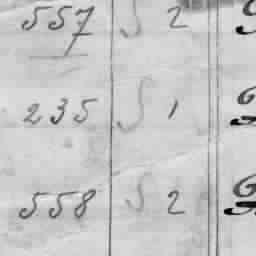 557 S 2
235 S 1
558 S 2